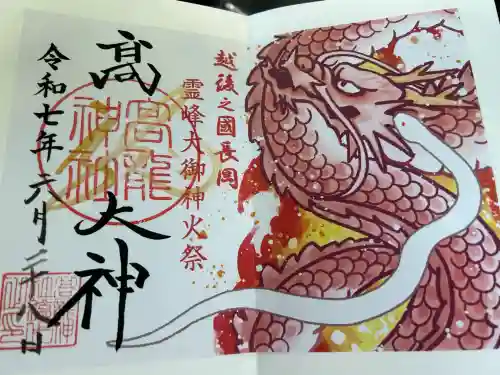 越後之國長岡
霊峰大御神火祭
髙大神
高龍
神社
令和七年六月二十八日